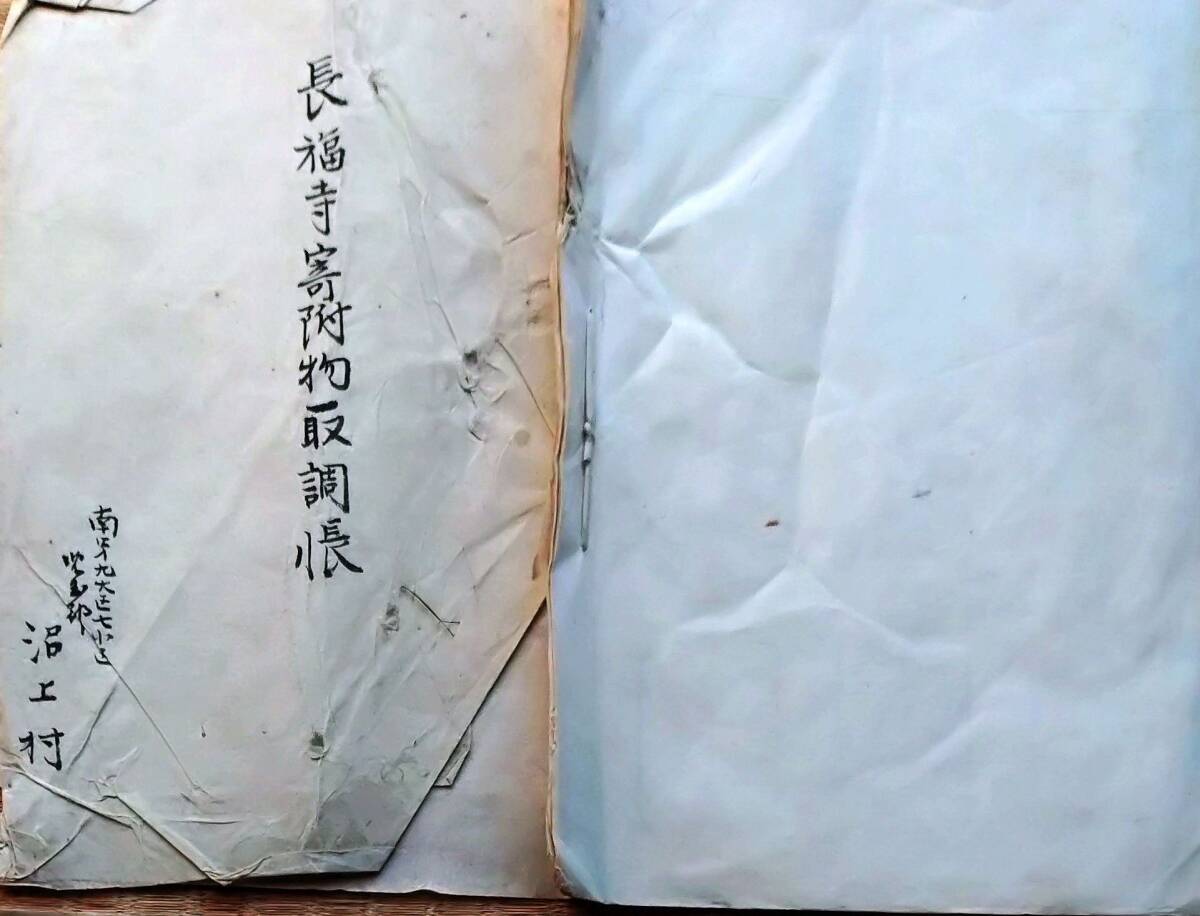 長福寺寄附物取調帳
南第九大区七小区
児玉郡
沼上村